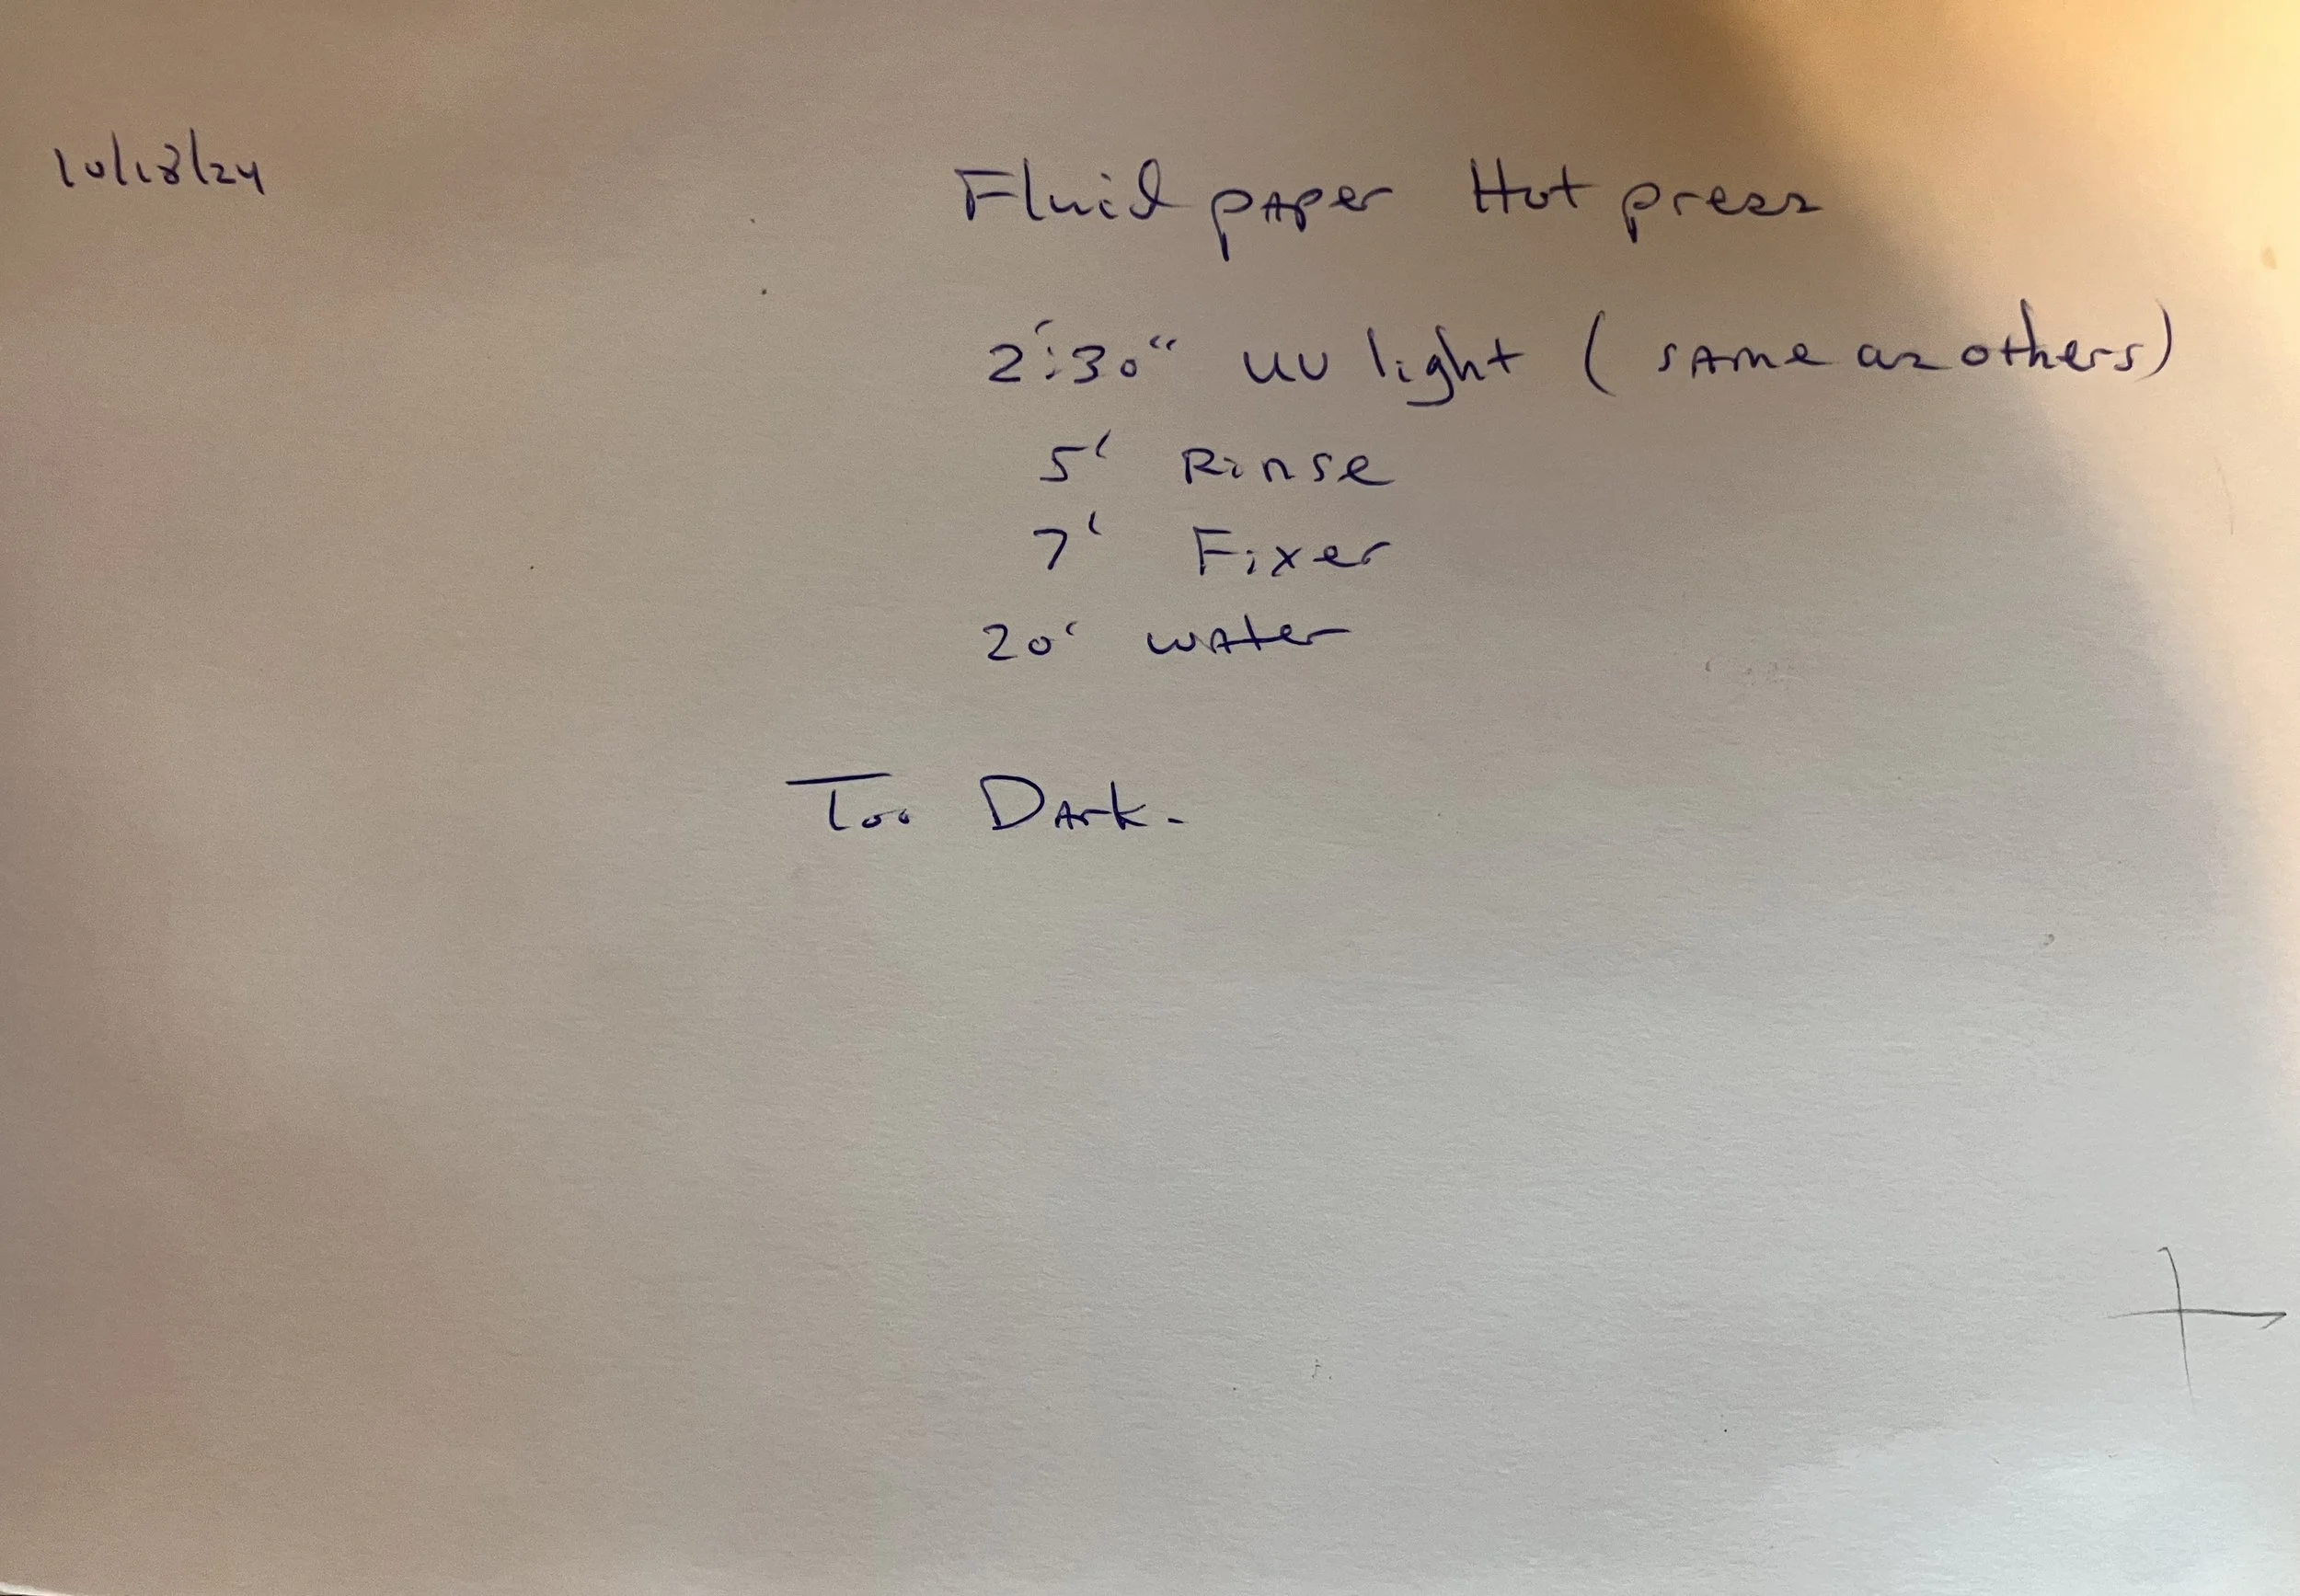 10/18/24
Fluid paper Hot press
2':30" UV light (same as others)
5' Rinse
7' Fixer
20' water
Too Dark.